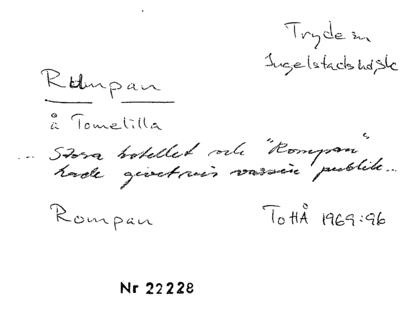 Tryde sn
Ingelstads hd, Sk
Rumpan
å Tomelilla
... Stora hotellet och "Rompan"
hade givetvis varsin publik...
Rompan
ToHÅ 1969:96
Nr 22228